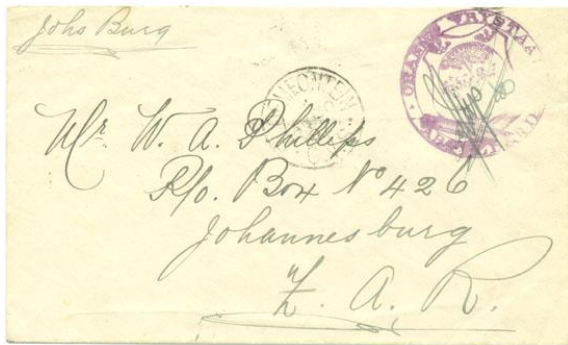 Johs Burg
ORANJE VRYSTAAT
FONTEIN
Mr. W. A. Phillips
P/o. Box No 426
Johannesburg
Z. A. R.